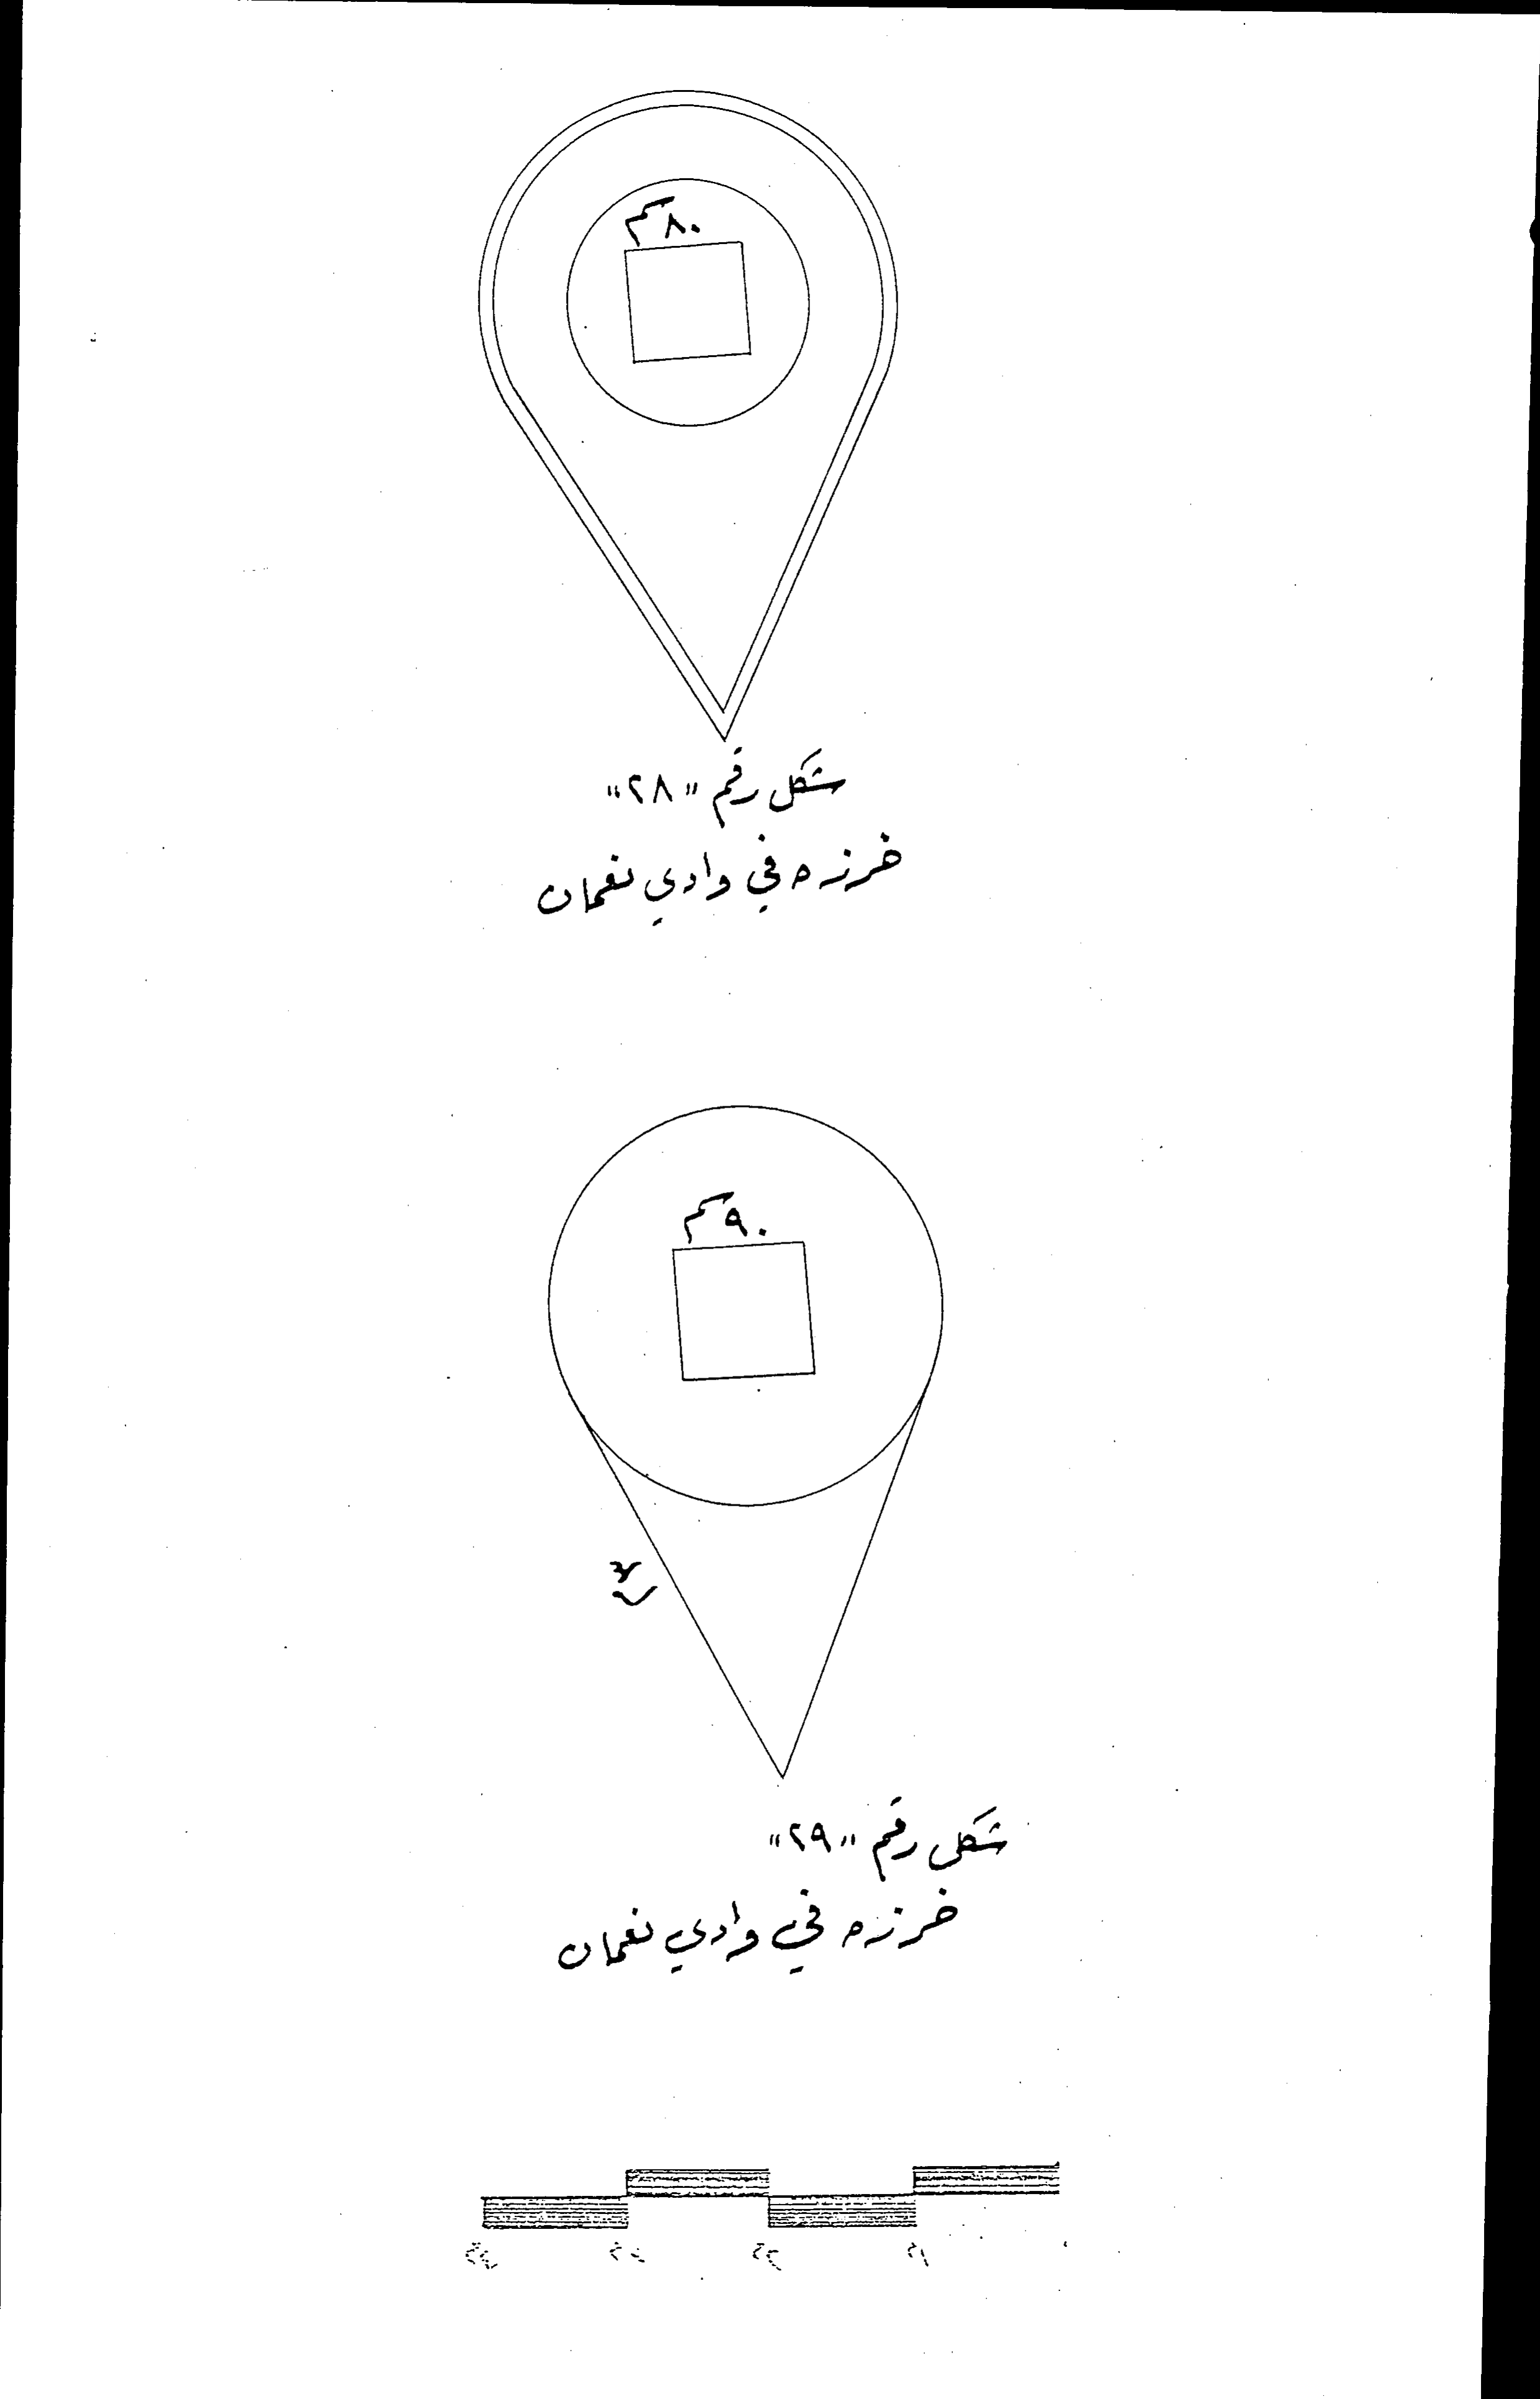 ٨٠سم
شكل رقم "٢٨"
خرزه في وادي نعمان
٩٠سم
شكل رقم "٢٩"
خرزه في وادي نعمان
٠ ١م ٢م ٣م ٤م